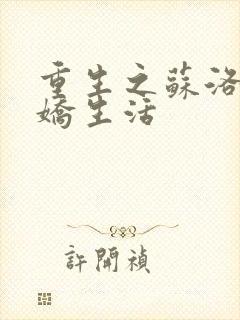 重生之蘇洛
嬌生活
許開禎